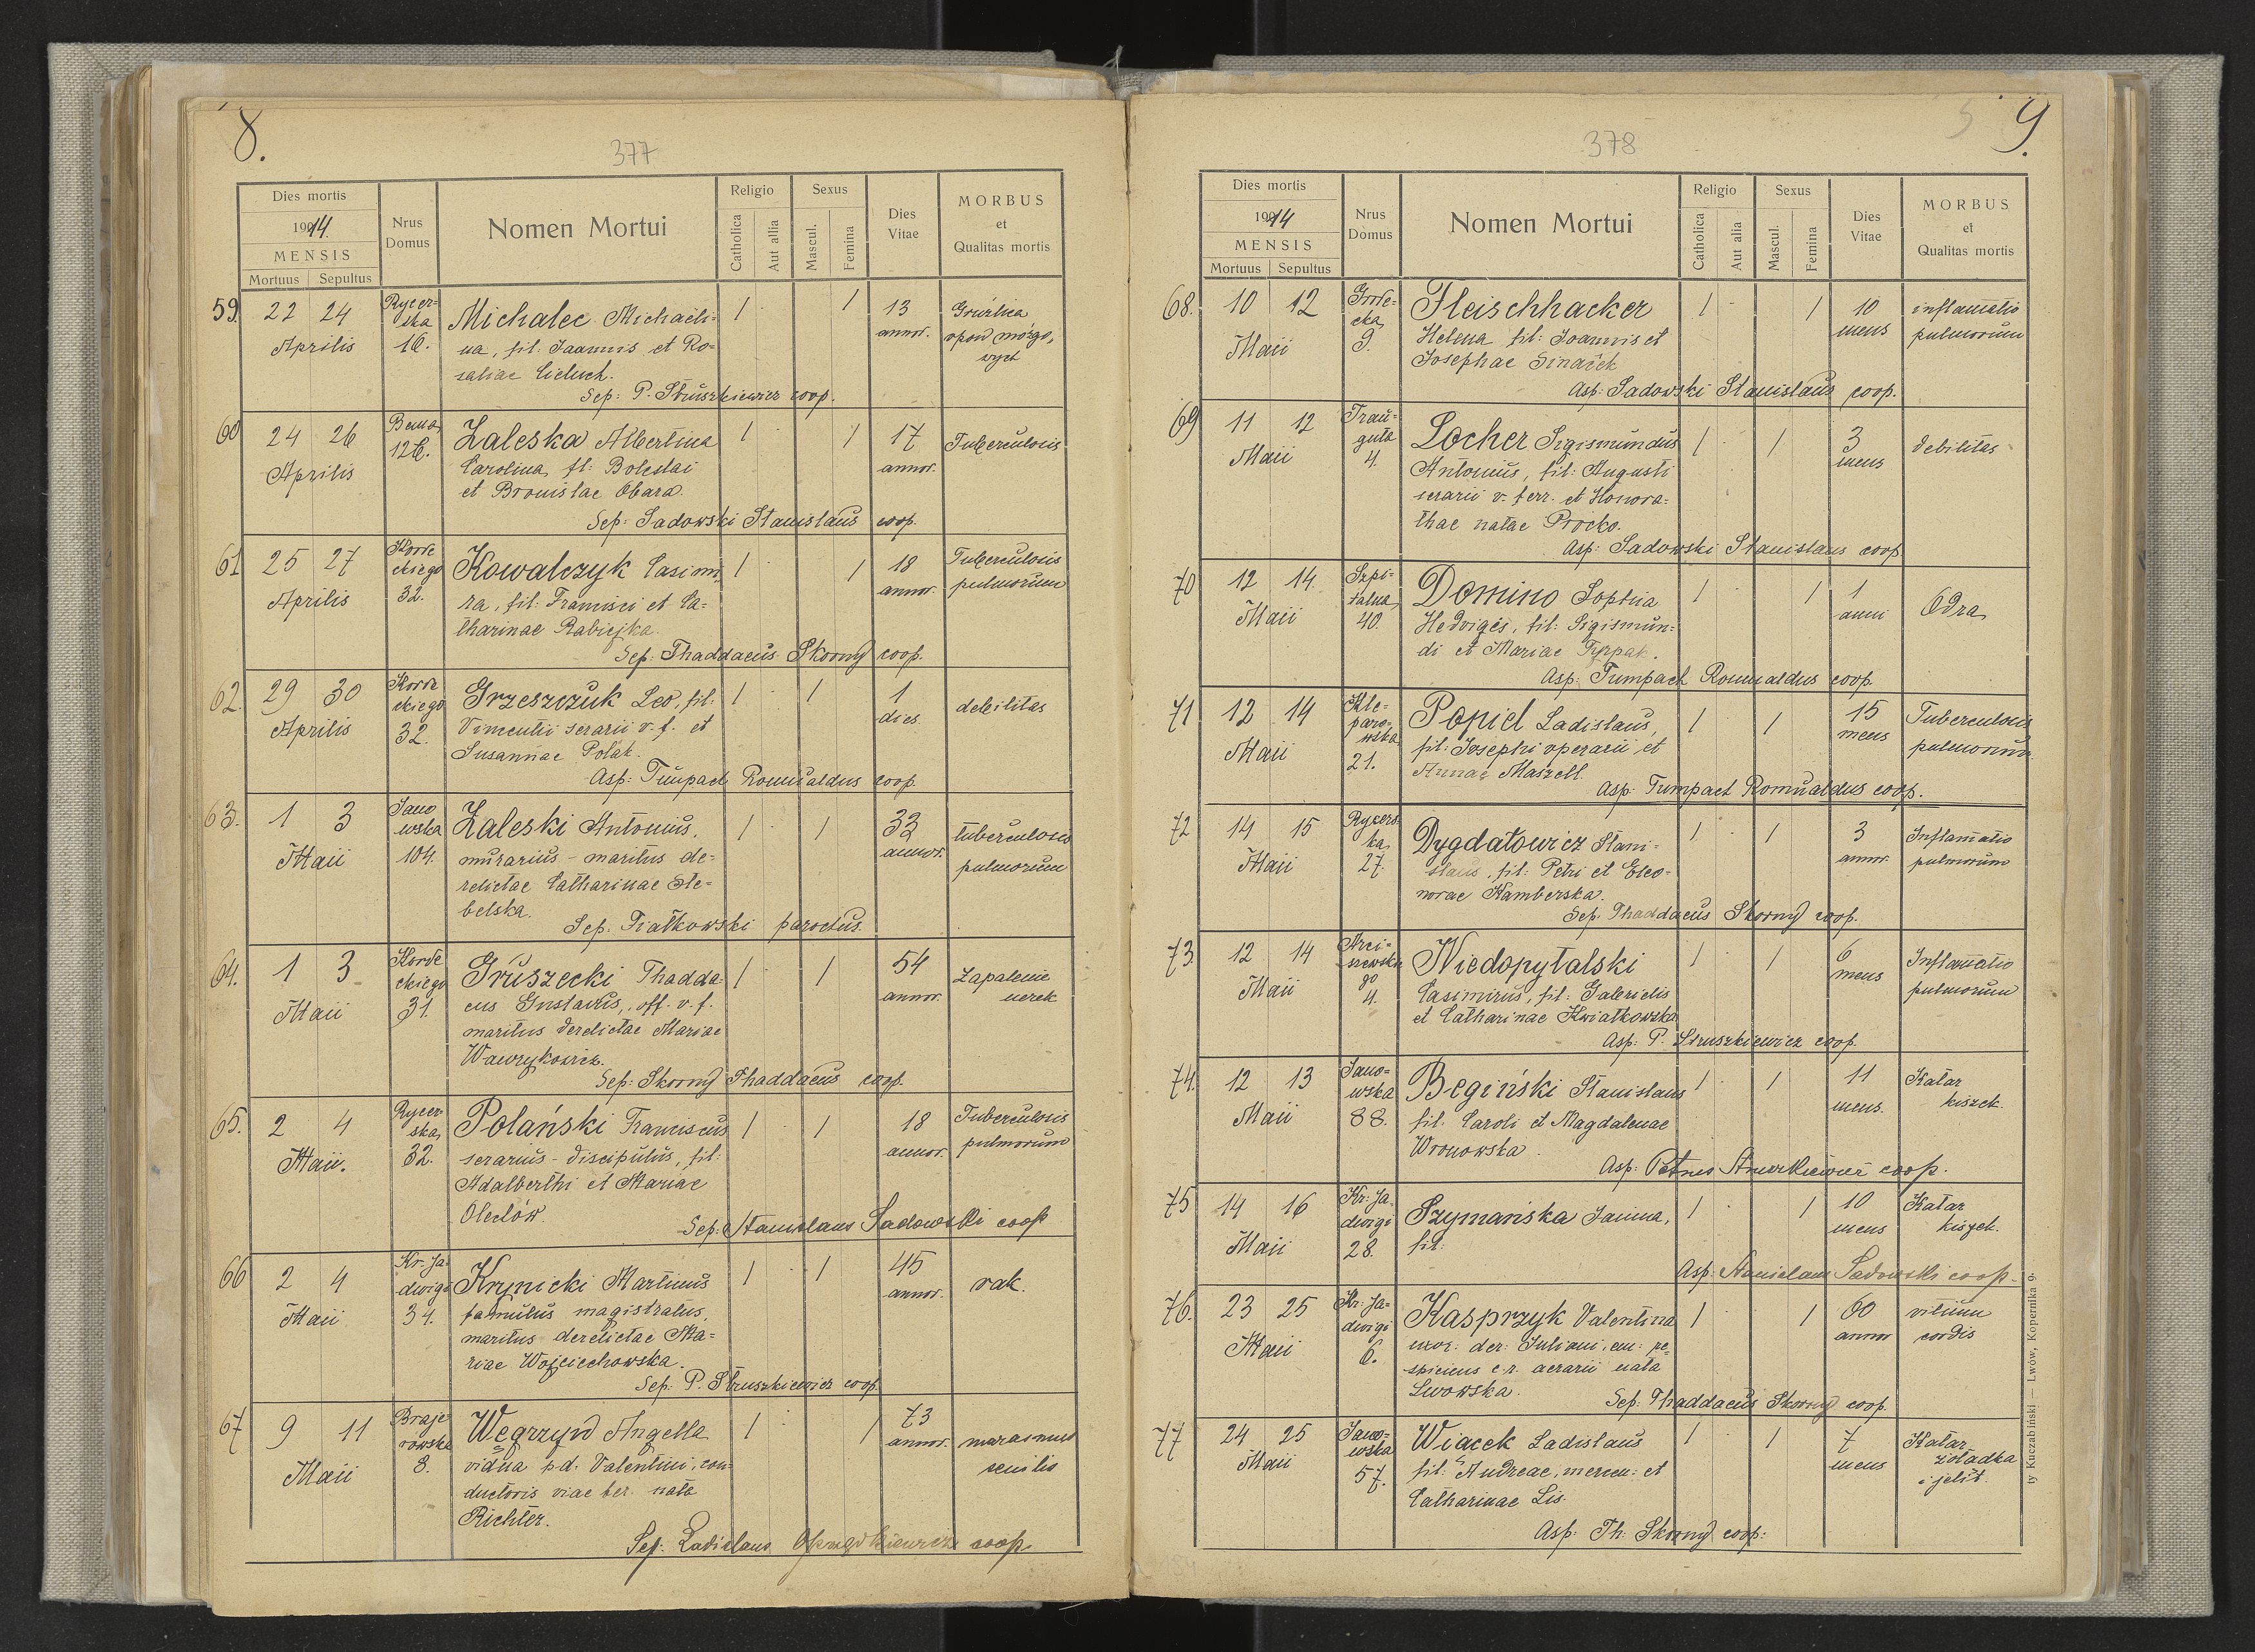 8.
377
Dies mortis
1914.
MENSIS
Mortuus Sepultus
Nrus Domus
Nomen Mortui
Religio
Catholica
Aut allia
Sexus
Mascul.
Femina
Dies Vitae
MORBUS
et
Qualitas mortis
59. 22 24 Aprilis
Rycer-
ska
16.
Michalec Michaeli-
na, fil: Joannis et Ro-
saliae Cieluch.
Sep: P. Struszkiewicz coop.
1 1
13 annor.
Gruźlica
opon mózgo,
wych
60 24 26 Aprilis
Bema
12b.
Zaleska Albertina
Carolina, fl: Boleslai
et Bronislae Obara.
Sep: Sadowski Stanislaus coop.
1 1
17 annor.
Tuberculosis
61 25 27 Aprilis
Korde
ckiego
32.
Kowalczyk Casimi
ra, fil: Francisci et Ca-
tharinae Rabiejka.
Sep: Thaddaeus Skorny coop.
1 1
18 annor.
Tuberculosis
pulmorum
62. 29 30 Aprilis
Korde
ckiego
32.
Grzeszczuk Leo, fil:
Vincentii serarii v. f. et
Susannae Polak.
Asp: Tumpach Romualdus coop.
1 1
1 dies.
debilitas
63. 1 3 Maii
Jano
wska
104.
Zaleski Antonius,
murarius - maritus de-
relictae Catharinae Ste-
belska.
Sep: Fiałkowski parochus.
1 1
33 annor.
tuberculosis
pulmorum
64. 1 3 Maii
Korde
ckiego
31.
Gruszecki Thadda-
eus Gustavus, off. v. f.
maritus derelictae Mariae
Wawrykowicz.
Sep: Skorny Thaddaeus coop.
1 1
54 annor.
Zapalenie
nerek
65. 2 4 Maii.
Rycer-
ska,
32.
Polański Franciscus
serarius - discipulus, fil:
Adalberthi et Mariae
Olechów.
Sep: Stanislaus Sadowski coop
1 1
18 annor.
Tuberculosis
pulmorum
66 2 4 Maii
Kr: Ja-
dwigi
34.
Krynicki Martinus
famulus magistratus,
maritus derelictae Ma-
riae Wojciechowska.
Sep: P. Struszkiewicz coop.
1 1
45 annor.
rak.
67 9 11 Maii
Braje
rowska
8.
Węgrzyn Angella
vidua p. d. Valentini, con-
ductoris viae fer. nata
Richter.
Sep: Ladislaus coop.
1 1
73 annor.
marasmus
senilis
9.
378
Dies mortis
1914
MENSIS
Mortuus Sepultus
Nrus Domus
Nomen Mortui
Religio
Catholica
Aut alia
Sexus
Mascul.
Femina
Dies Vitae
MORBUS
et
Qualitas mortis
68. 10 12 Maii
Grode-
cka,
9.
Fleischhacker
Helena fil: Joannis et
Josephae Sinaček
Asp: Sadowski Stanislaus coop.
1 1
10 mens
inflamatio
pulmorum
69 11 12 Maii
Trau-
guta
4.
Locher Sigismundus
Antonius, fil: Augusti
serarii v. ferr. et Honora-
thae natae Procko.
Asp: Sadowski Stanislaus coop
1 1
3 mens
debilitas
70 12 14. Maii
Szpi-
talna,
40.
Domino Sophia
Hedvigis, fil: Sigismun-
di et Mariae Pyrpak.
Asp: Tumpach Romualdus coop.
1 1
1 anni
Odra
71 12 14 Maii
Kle-
paro-
wska
21.
Popiel Ladislaus,
fil: Josephi operarii et
Annae Maszell.
Asp: Tumpach Romualdus coop.
1 1
15 mens
Tuberculosis
pulmorum
72 14 15 Maii
Rycers-
ka,
27.
Dygdałowicz Stani-
slaus, fil: Petri et Eleo-
norae Hamberska.
Sep. Thaddaeus Skorny coop.
1 1
3 annor.
Inflamatio
pulmorum
73. 12 14 Maii
Arci-
szewskie
go
4.
Niedopytalski
Casimirus, fil: Galerielis
et Catharinae Kwiatkowska
Asp: P. Struszkiewicz coop.
1 1
6 mens
Inflamatio
pulmorum
74. 12 13 Maii
Jano-
wska
88.
Begiński Stanislaus
fil. Caroli et Magdalenae
Wronowska.
Asp: Petrus Struszkiewicz coop.
1 1
11 mens.
Katar
kiszek.
75 14 16 Maii
Kr: Ja
dwigi
28.
Szymańska Janina,
fil:
Asp: Stanislaus Sadowski coop.
1 1
10 mens
Katar
kiszek.
76. 23 25 Maii
Kr: Ja-
dwigi
6.
Kasprzyk Valentina
uxor: der: Juliani, em: re-
spiciens c. r. aerarii nata
Lwowska.
Sep: Thaddaeus Skorny coop.
1 1
60 annor
vitium
cordis
77 24 25 Maii
Jano-
wska
57.
Wiącek Ladislaus
fil: Andreae, mercen: et
Catharinae Lis.
Asp: Th: Skorny coop:
1 1
7 mens
Katar
żołądka
i jelit.
ty Kuczabiński — Lwów, Kopernika 9.